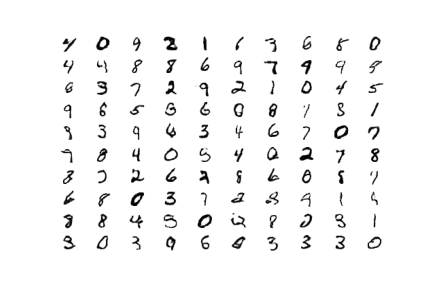 4 0 9 2 1 6 3 6 8 0
4 4 8 8 6 9 7 9 9 8
6 3 7 2 9 2 1 0 4 5
9 6 5 3 6 0 8 1 3 1
9 3 9 6 3 4 6 7 0 7
7 8 4 0 5 4 0 2 7 8
8 2 2 6 2 8 6 0 8 7
6 8 0 3 7 2 8 9 1 5
8 8 4 5 0 2 8 0 3 1
3 0 3 9 6 0 3 3 3 0